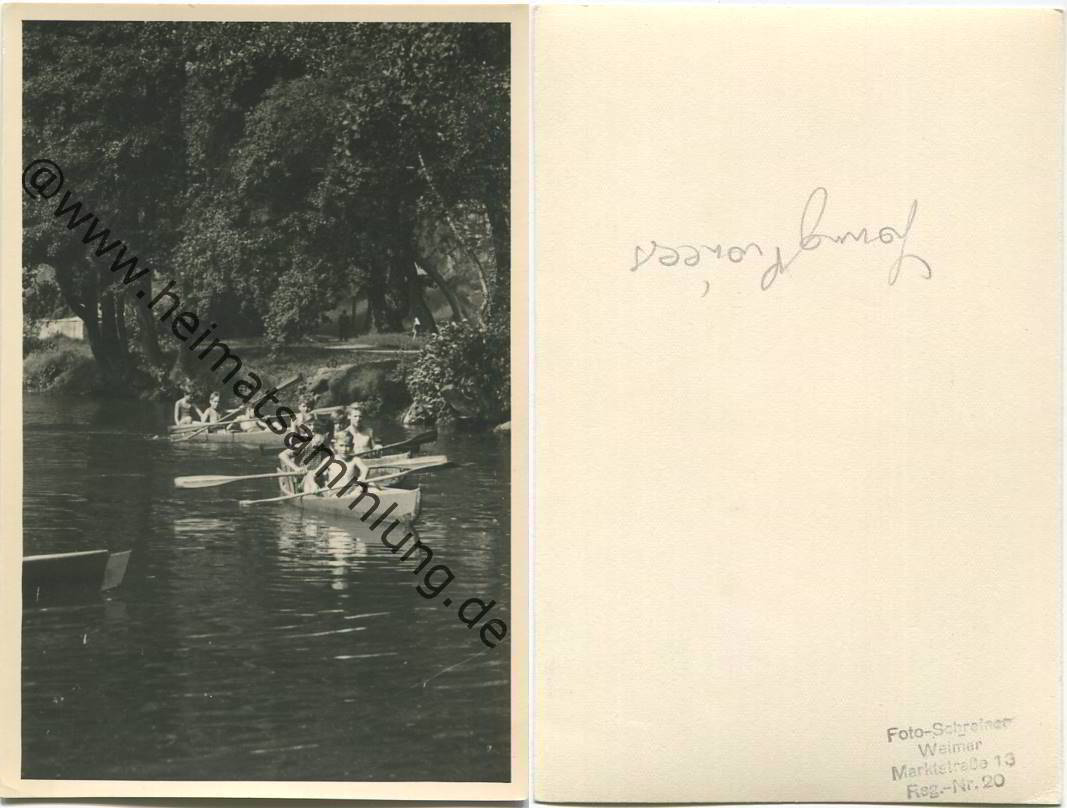 @www.heimatsammlung.de
Foto-Schreiner
Weimar
Marktstraße 13
Reg.-Nr. 20